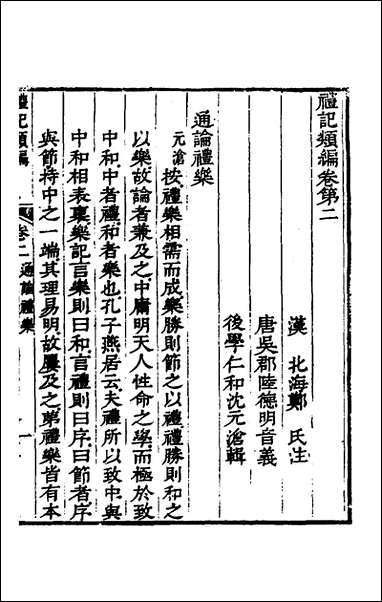 禮記類編卷第二
漢北海鄭氏注
唐吳郡陸德明音義
後學仁和沈元滄輯
通論禮樂
元滄按禮樂相需而成樂勝則節之以禮禮勝則和之
以樂故論者兼及之中庸明天人性命之學而極於致
中和中者禮和者樂也孔子燕居云夫禮所以致中與
中和相表裏樂記言樂則曰和言禮則曰序曰節者序
與節持中之一端其理易明故屢及之第禮樂皆有本
禮記類編 卷二通論禮樂 一